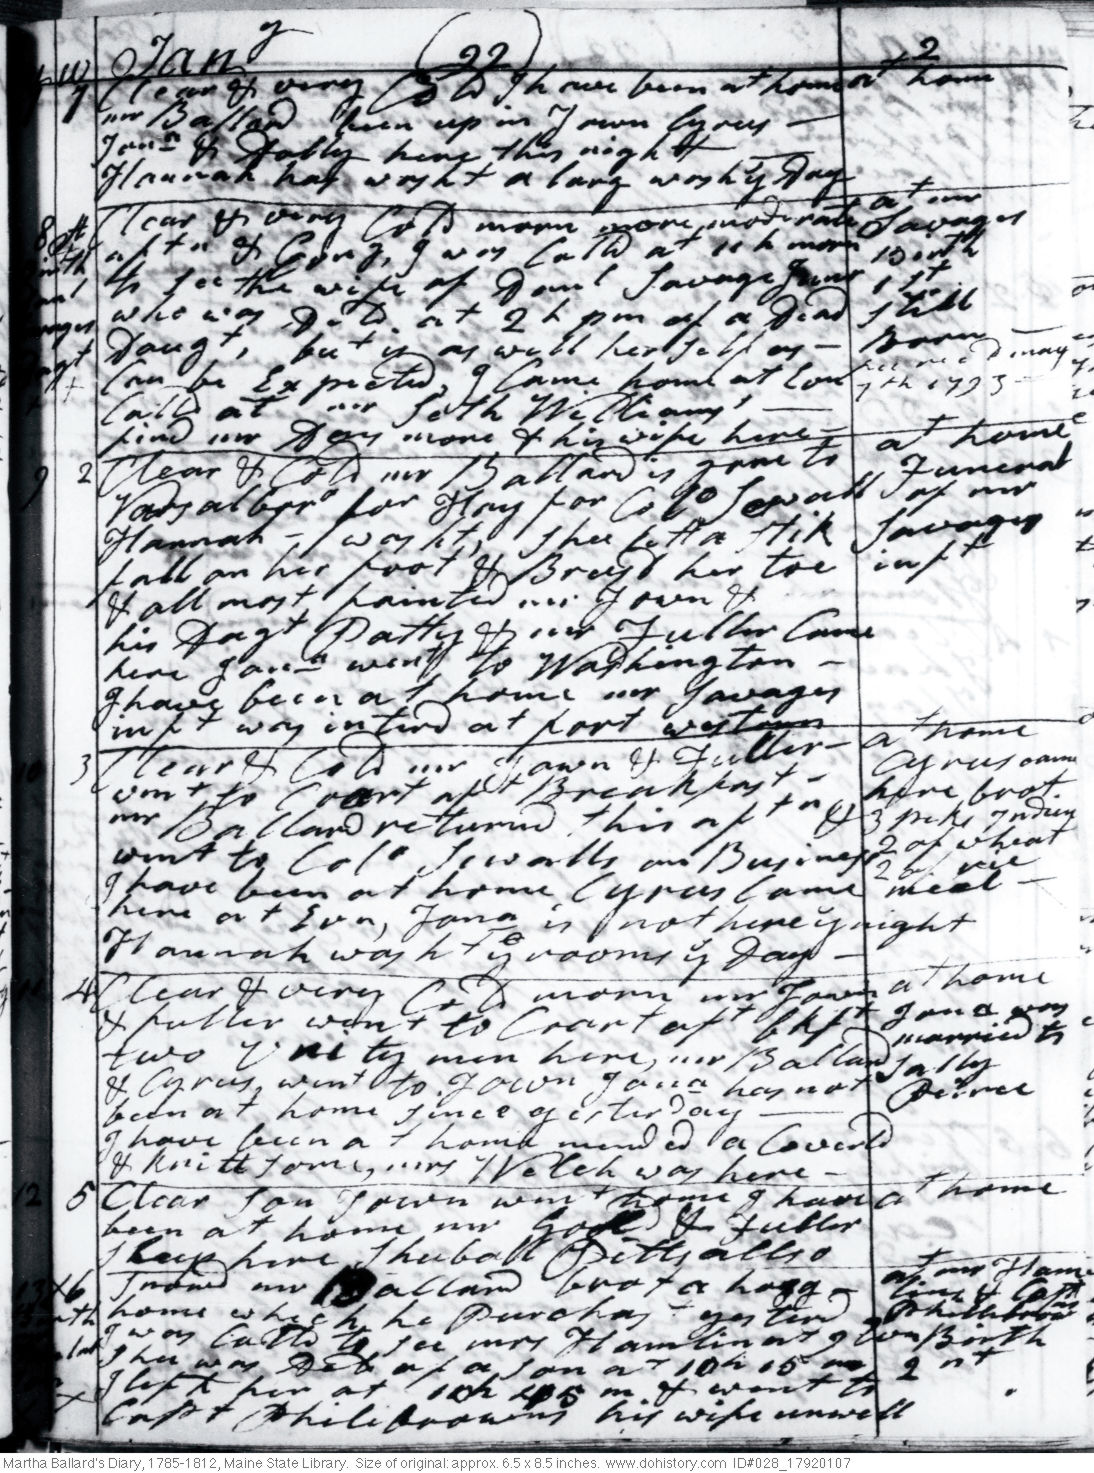 Jany (22) 2
7 Clear & very Cold I have been at home at home
mr Ballard been up in Town Cyrus -
Jonn & Dolly here this night
Hannah has washt a larg wash y Day
8 Clear & very Cold morn more moderate at mr
aftn & Cong, I was Calld at 11 h morn Savages
to see the wife of Danl Savage Junr Birth
who was Deld at 2 h pm of a Dead 1st Still
Daugt, but is as well her self as - Born
Can be Expected, I Came home at Evn received may
Calld at mr Seth Williams' - 7th 1793
find mr Densmore & his wife here -
9 2 Clear & Cold mr Ballard is gone to at home
Varsalboro for Hay for Colo Sewall Funeral
Hannah - washt, shee lett a stik of mr
fall on her foot & Breusd her toe Savages
& all most fainted mr Town & inft
his Dagt Patty & mr Fuller Came
here Jonn went to Washington -
I have been at home mr Savages
inft was interd at fort western
10 3 Clear & Cold mr Town & Fuller - at home
went to Coart aft Breakfast - Cyrus came
mr Ballard returned this aftn & here brot
went to Colo Sewalls on Business 3 peks Indien
I have been at home Cyrus Came 2 of wheat
here at Evn, Jona is not here y night 2 of rie meal -
Hannah washt ye rooms y Day -
11 4 Clear & very Cold morn mr Town at home
& fuller went to Coart aft bkft Jona was
two Unity men here, mr Ballard married to
& Cyrus went to Town Jona has not Sally
been at home since yesterday - Peirce
I have been at home mended a Coverld
& knitt some, mrs Welch was here -
12 5 Clear Son Town went home I have at home
been at home mr Good & Fuller
sleep here Shuball Pitts allso
13 6 Snowd mr Ballard brot a hogg - at mr Hamlins & Capt
home which he Purchast yesterd Philibrowns
I was Calld to see mrs Hamlin at 9 Evn Birth
shee was Deld of a son at 10 h 15 m 2nd
I left her at 11 h 45 m & went to
Capt Philibrowns his wife unwell
Martha Ballard's Diary, 1785-1812, Maine State Library. Size of original: approx. 6.5 x 8.5 inches. www.dohistory.com ID#028_17920107